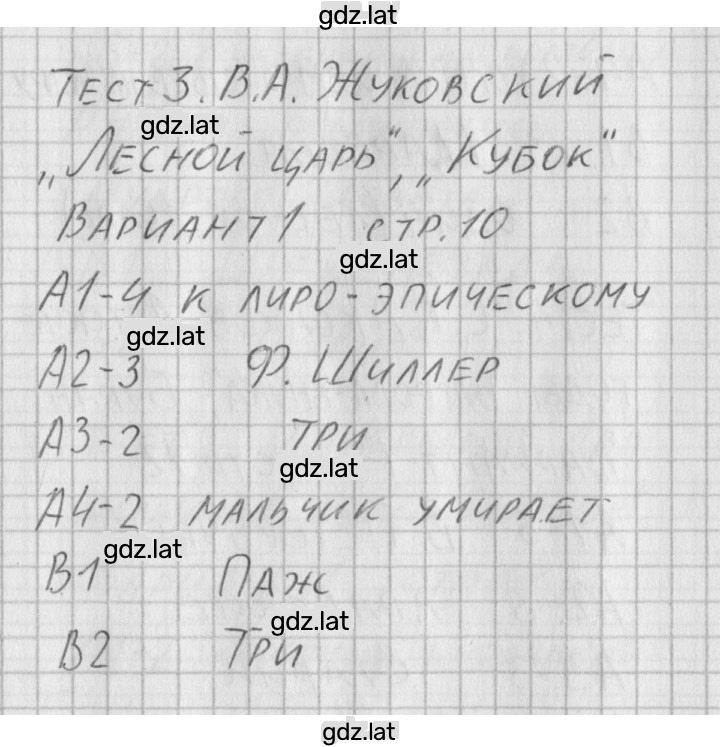 gdz.lat
Тест 3. В.А. Жуковский
gdz.lat
„Лесной царь“, „Кубок“
Вариант 1 стр. 10
gdz.lat
А1-4 к лиро-эпическому
gdz.lat
А2-3 Ф. Шиллер
А3-2 три
gdz.lat
А4-2 мальчик умирает
gdz.lat
В1 Паж
gdz.lat
В2 Три
gdz.lat